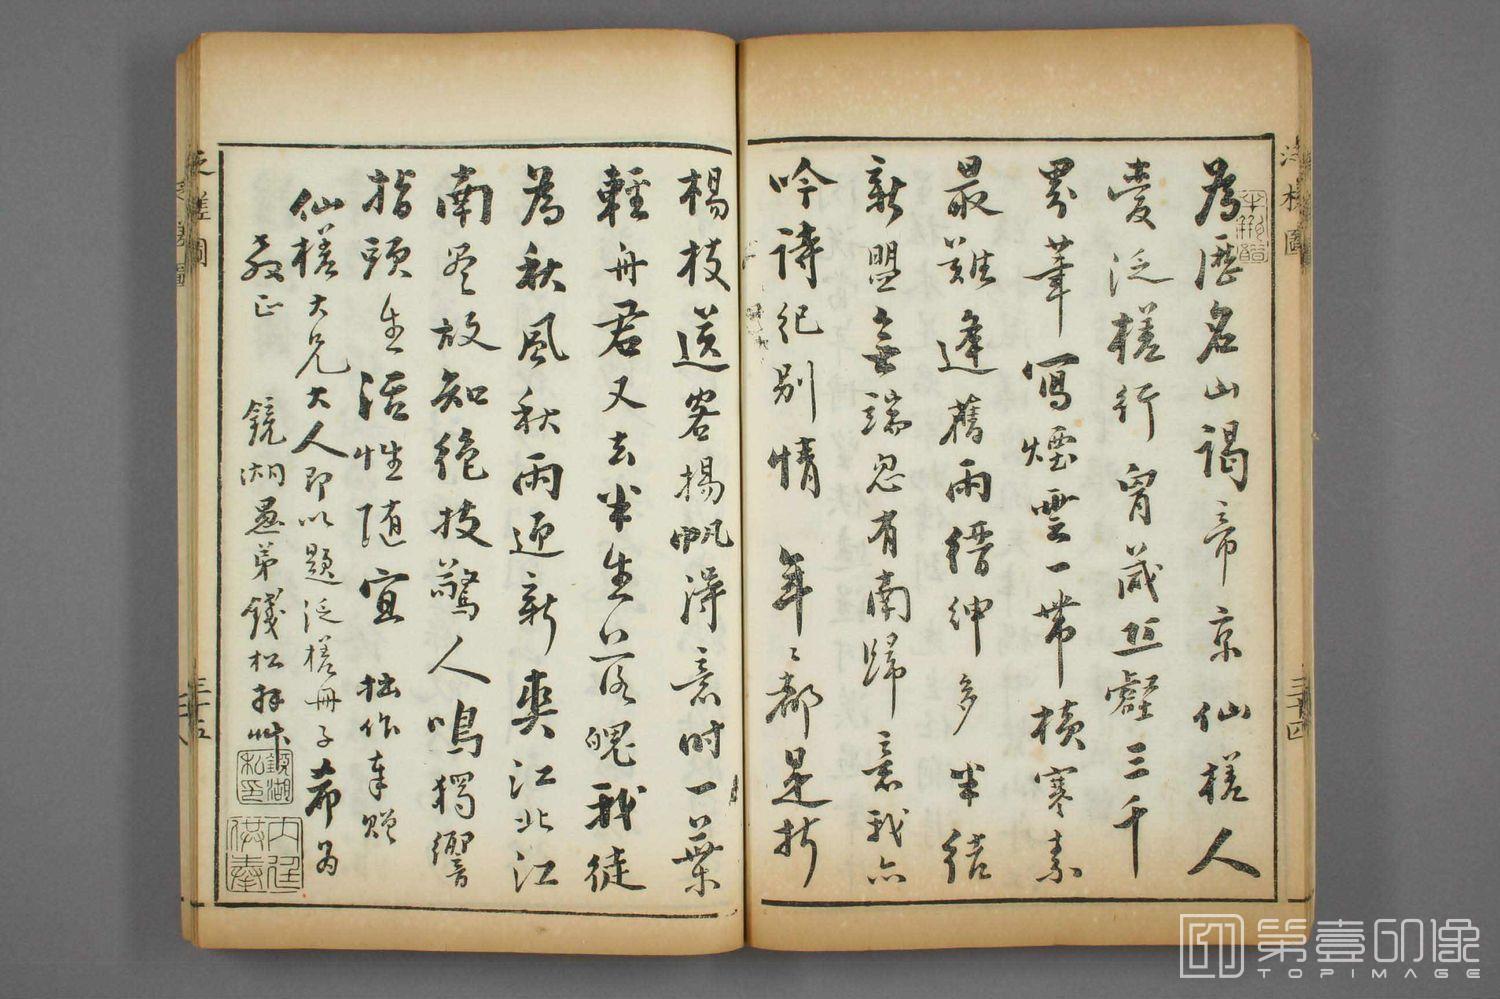 爲歷名山謁帝京仙槎人
愛泛槎行胷藏丘壑三千
界筆寫煙雲一帶橫寒素
最難逢舊雨縉紳多半結
新盟無端忽有南歸意我亦
吟詩紀別情 年〻都是折
楊枝送客揚帆得意時一葉
輕舟君又去半生落魄我徒
爲秋風秋雨迎新爽江北江
南放知絶技驚人鳴獨響
指頭生活性隨宜 拙作奉贈
仙槎大兄大人即以題泛槎冊子希爲
教正 鏡湖愚弟錢松拜艸
鏡湖
私印
內廷
供奉
泛槎圖
三十四
泛槎圖
三十五
第壹印像
TOPIMAGE